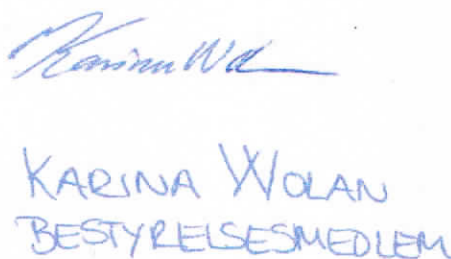 Karina Wol
KARINA WOLAN
BESTYRELSESMEDLEM